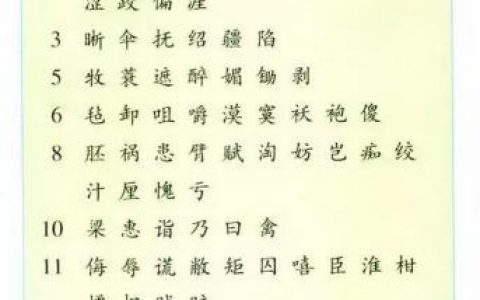 涩 政 偏 涯
3 晰 伞 抚 绍 疆 陷
5 牧 蓑 遮 醉 媚 锄 剥
6 毡 卸 咀 嚼 漠 寞 袄 袍 傻
8 胚 祸 患 臂 赋 淘 妨 岂 痴 绞
汁 厘 愧 亏
10 梁 惠 诣 乃 曰 禽
11 侮 辱 谎 敝 矩 囚 嘻 臣 淮 柑